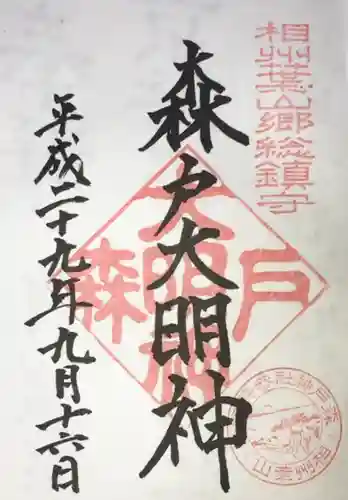 相州葉山郷総鎮守
森戸大明神
森戸大明神
平成二十九年九月十六日